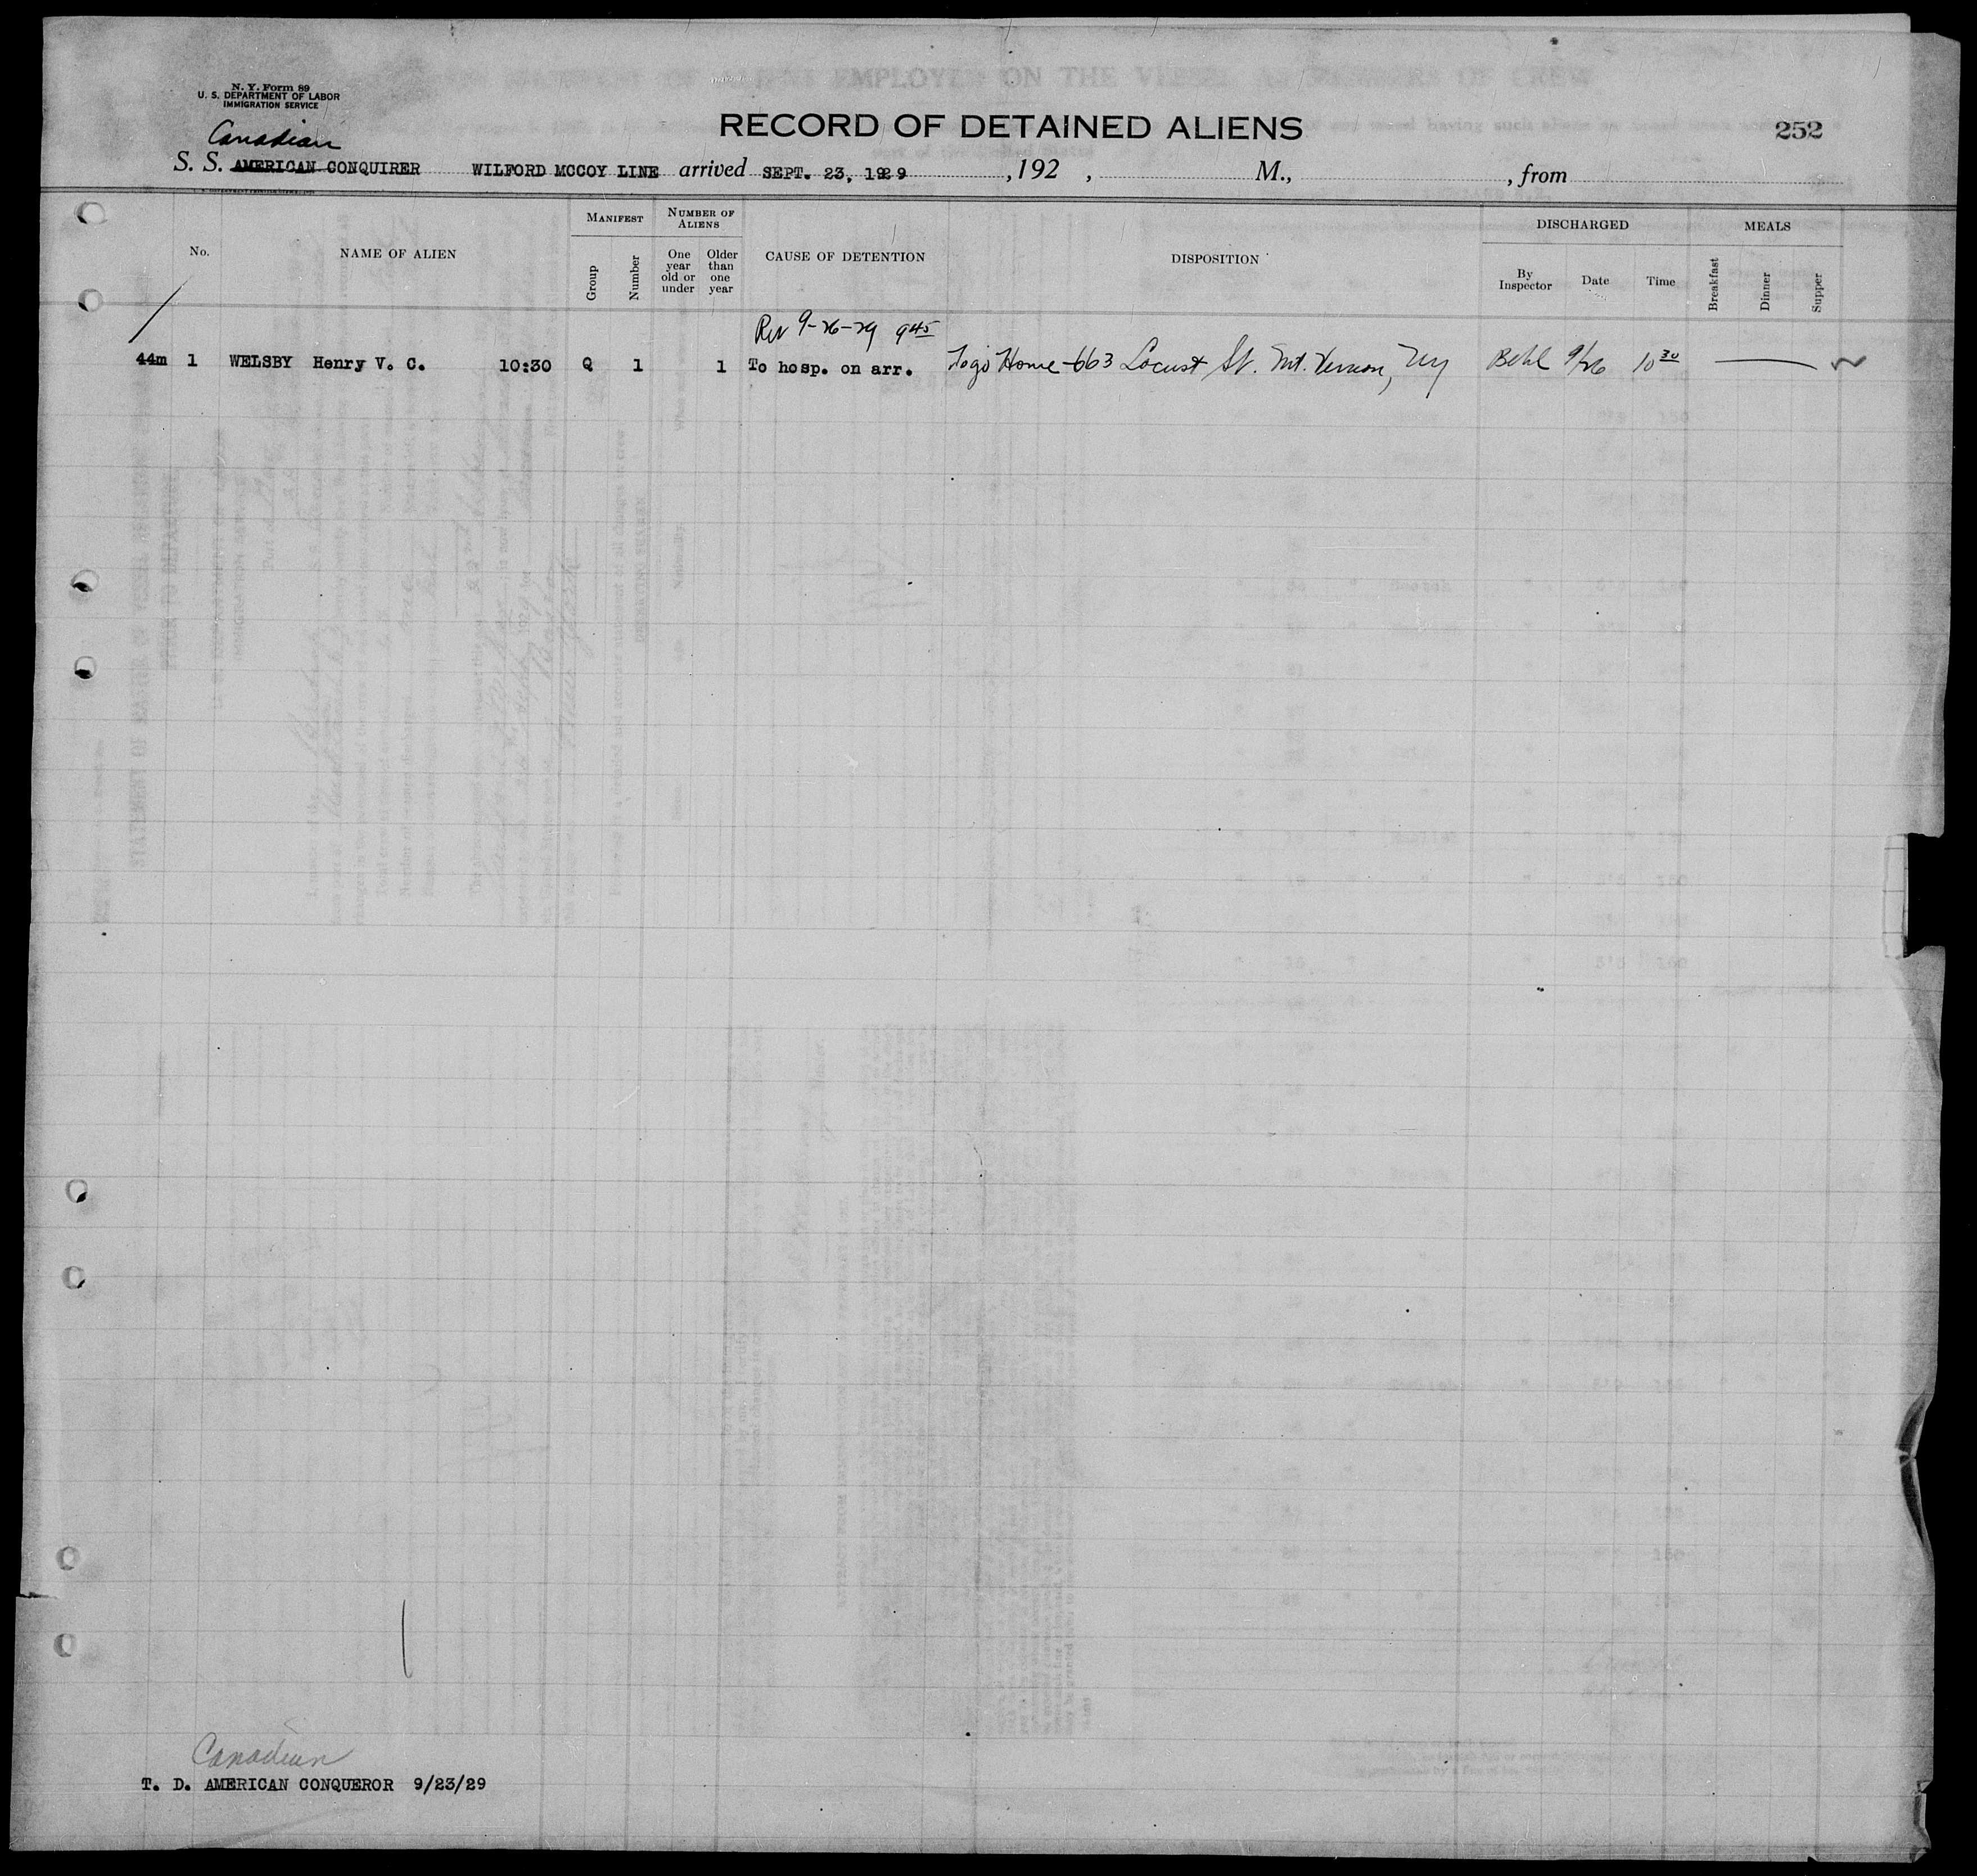 N. Y. Form 89
U. S. DEPARTMENT OF LABOR
IMMIGRATION SERVICE
RECORD OF DETAINED ALIENS
252
Canadian
S. S. AMERICAN CONQUIRER WILFORD MCCOY LINE arrived SEPT. 23, 1929 , 192 , M., , from
No. NAME OF ALIEN MANIFEST Group Number NUMBER OF ALIENS One year old or under Older than one year CAUSE OF DETENTION DISPOSITION DISCHARGED By Inspector Date Time MEALS Breakfast Dinner Supper
9-26-29 945
44m 1 WELSBY Henry V. C. 10:30 Q 1 1 To hosp. on arr. Home 663 Locust St. Mt. Vernon, NY 9/26 10 30
Canadian
T. D. AMERICAN CONQUEROR 9/23/29